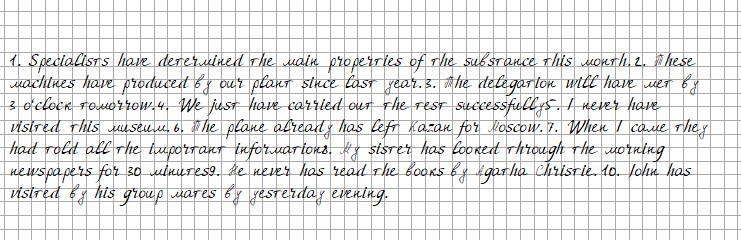 1. Specialists have determined the main properties of the substance this month.2. These
machines have produced by our plant since last year.3. The delegation will have met by
3 o'clock tomorrow.4. We just have carried out the test successfully5. I never have
visited this museum.6. The plane already has left Kazan for Moscow.7. When I came they
had told all the important information8. My sister has looked through the morning
newspapers for 30 minutes9. He never has read the books by Agatha Christie.10. John has
visited by his group mates by yesterday evening.